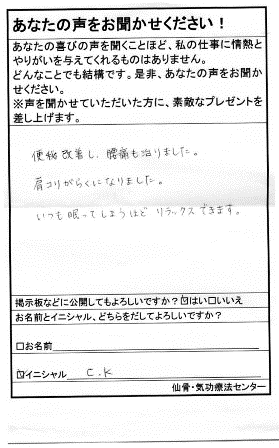 あなたの声をお聞かせください！
あなたの喜びの声を聞くことほど、私の仕事に情熱と
やりがいを与えてくれるものはありません。
どんなことでも結構です。是非、あなたの声をお聞か
せください。
※声を聞かせていただいた方に、素敵なプレゼントを
差し上げます。
便秘改善し、腰痛も治りました。
肩コリがらくになりました。
いつも眠ってしまうほど リラックスできます。
掲示板などに公開してもよろしいですか？☑はい□いいえ
お名前とイニシャル、どちらをだしてよろしいですか？
□お名前
☑イニシャル C.K
仙骨・気功療法センター